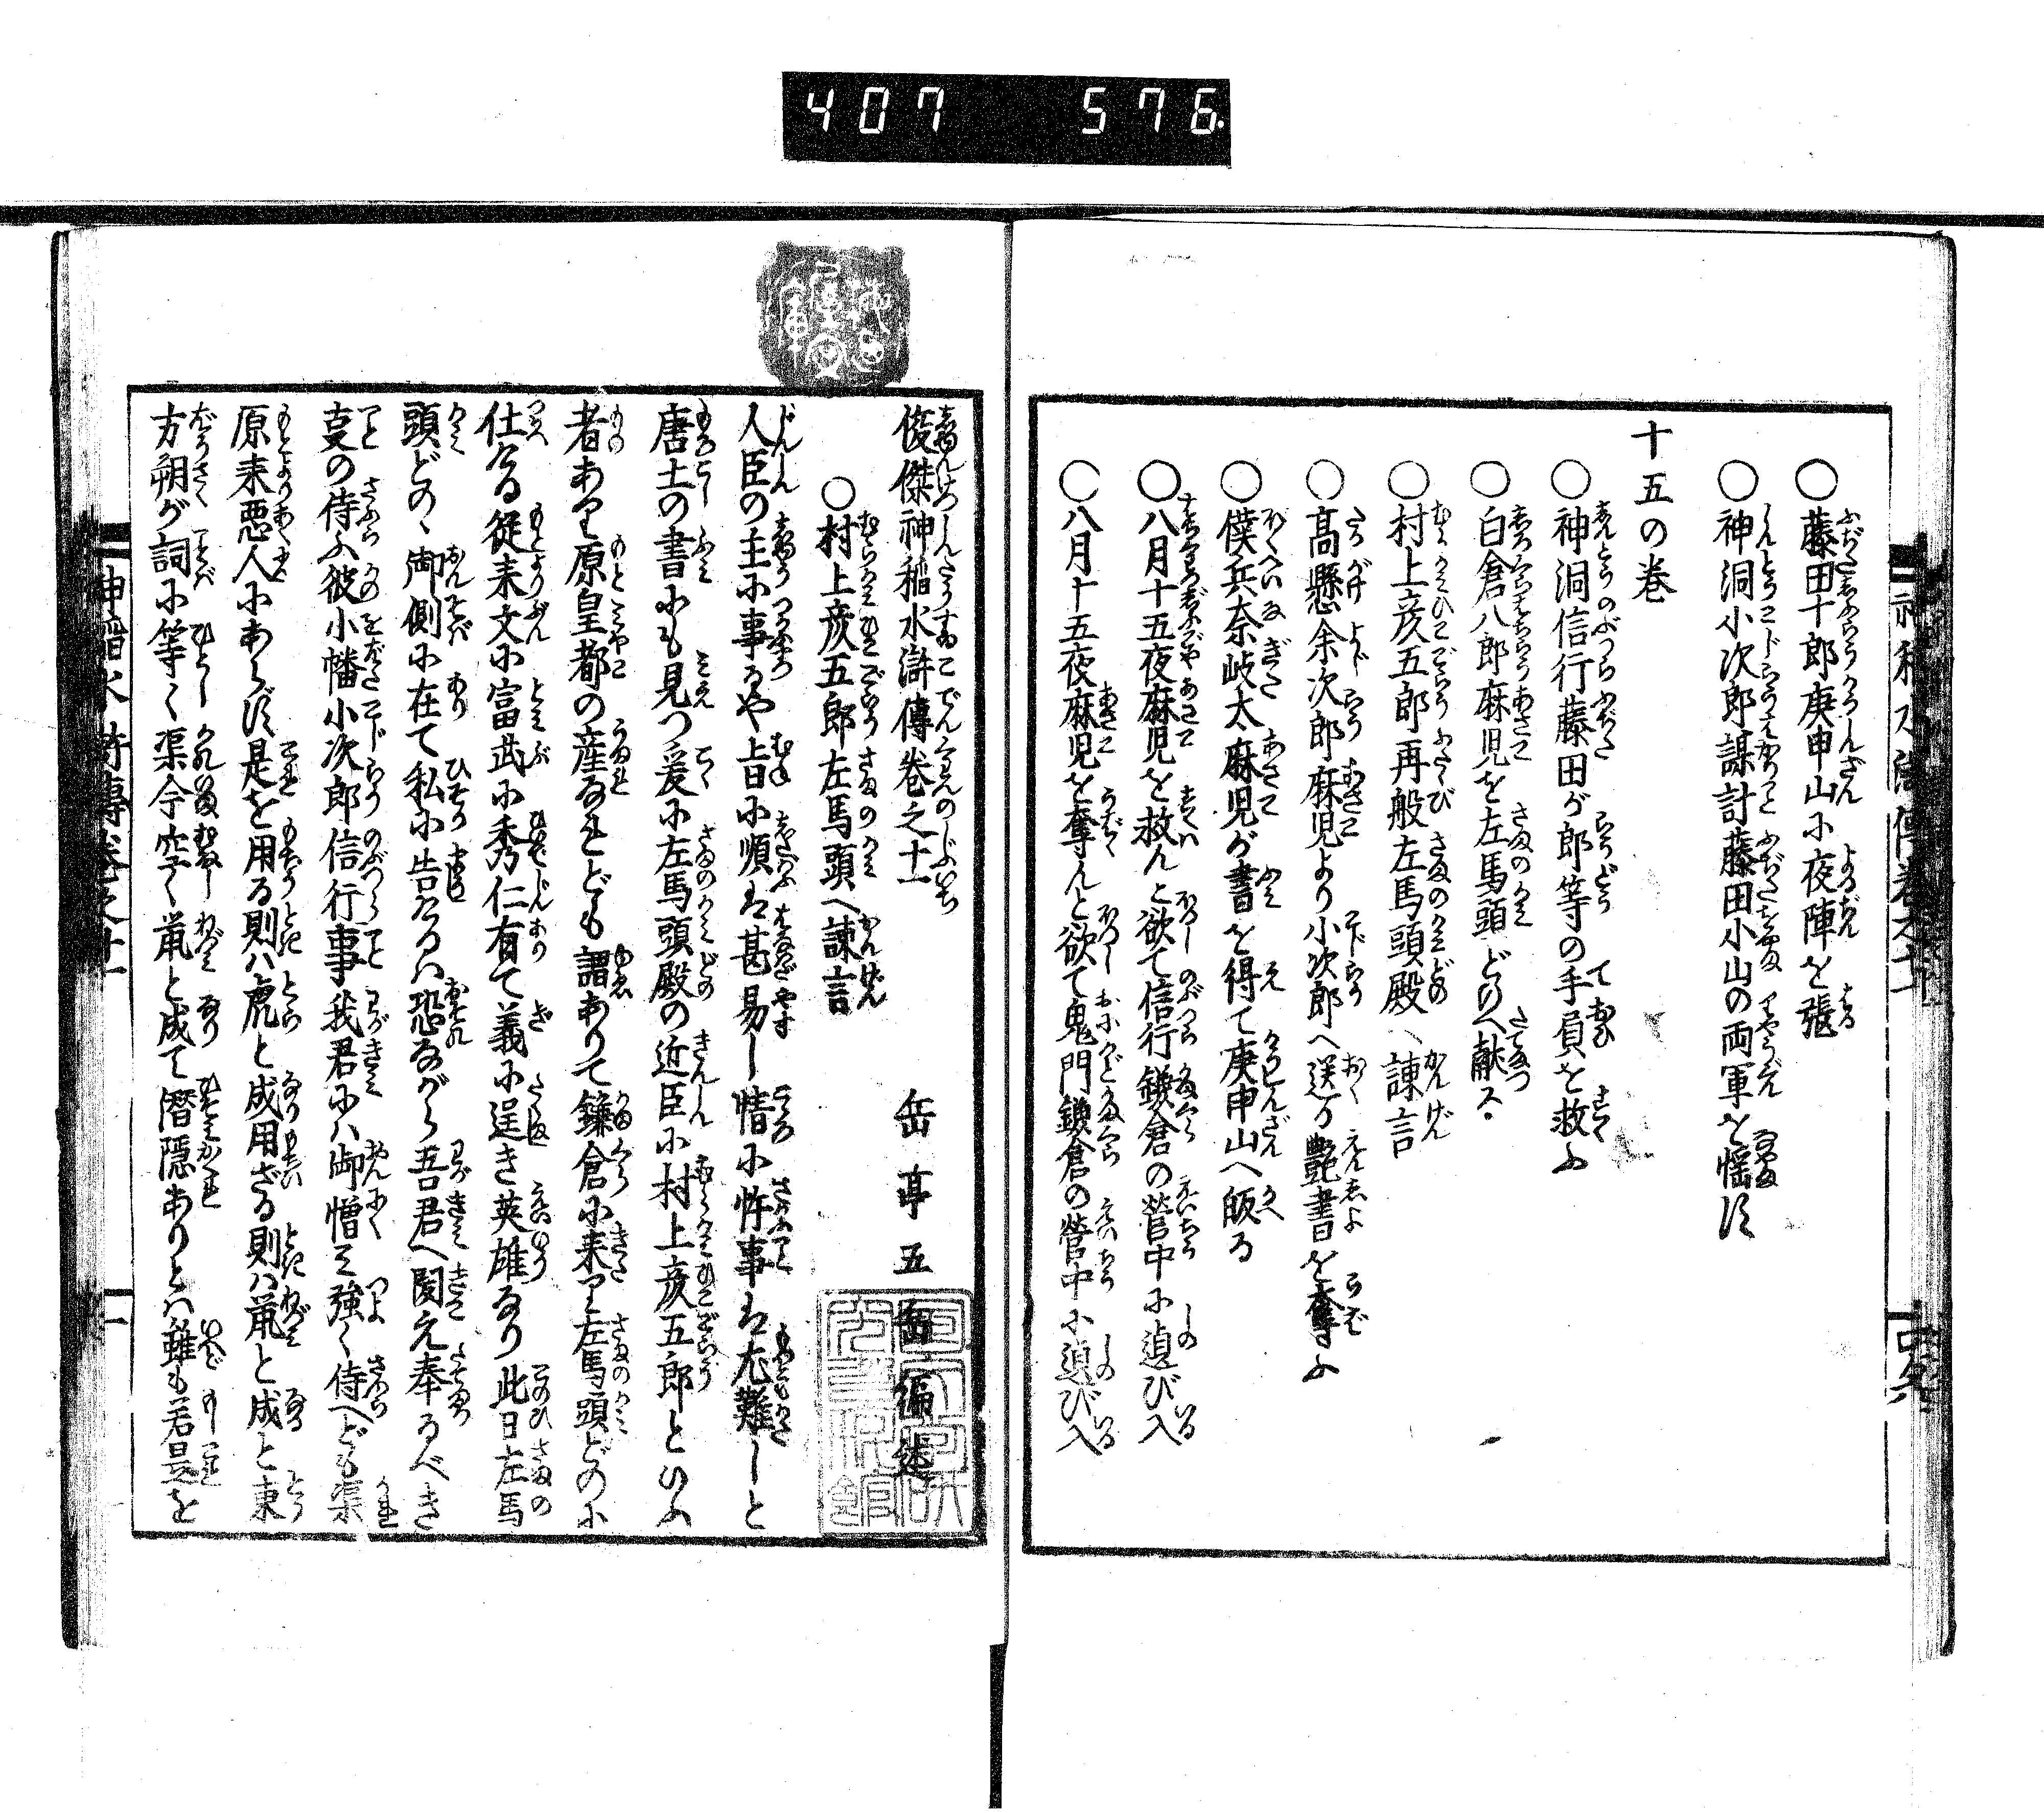 407 576
○藤田十郎庚申山に夜陣を張
○神洞小次郎謀計藤田小山の両軍を悩す
十五の巻
○神洞信行藤田が郎等の手負を救ふ
○白倉八郎麻児を左馬頭どのへ献ス
○村上彦五郎再般左馬頭殿へ諫言
○高懸余次郎麻児より小次郎へ送る艶書を奪ふ
○僕兵奈岐太麻児が書を得て庚申山へ皈る
○八月十五夜麻児を救んと欲て信行鎌倉の営中に逭び入
○八月十五夜麻児を奪んと欲て鬼門鎌倉の営中に逭び入
俊傑神稲水滸傳巻之十一
岳亭五岳編述
○村上彦五郎左馬頭へ諫言
人臣の主に事るや旨に順は甚易し情に忤事は尤難しと
唐土の書にも見つ爰に左馬頭殿の近臣に村上彦五郎といふ
者あり原皇都の産なれども謂ありて鎌倉に来り左馬頭どのに
仕る従来文に富武に秀仁有て義に逞き英雄なり此日左馬
頭どのゝ御側に在て私に告けるハ恐ながら吾君へ聞え奉るべき
叓の侍ふ彼小幡小次郎信行事我君にハ御憎ミ強く侍へども渠
原来悪人にあらず是を用る則ハ虎と成用ざる則ハ鼠と成と東
方朔が詞に等く渠今空く鼠と成て潜隠ありとハ雖も若是を
神稲水滸傳巻之十一
一